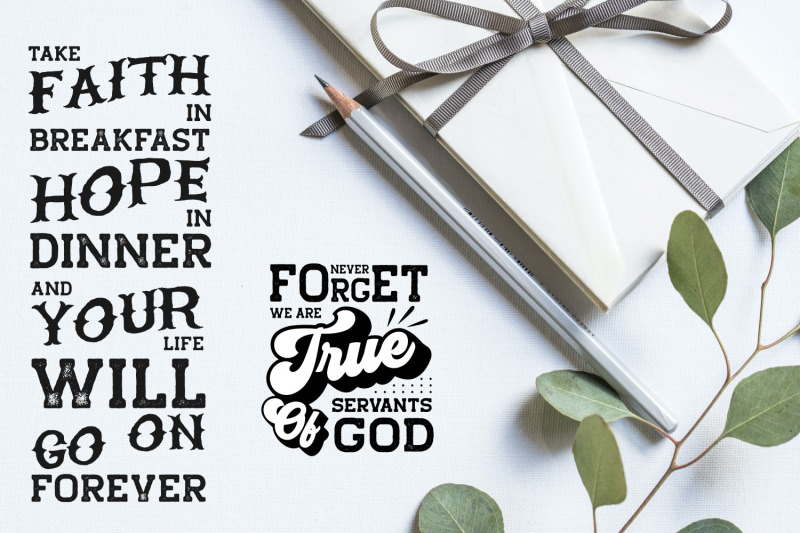 TAKE
FAITH
IN
BREAKFAST
HOPE
IN
DINNER
AND
YOUR
LIFE
WILL
GO ON
FOREVER
NEVER
FORGET
WE ARE
True
Of SERVANTS
GOD